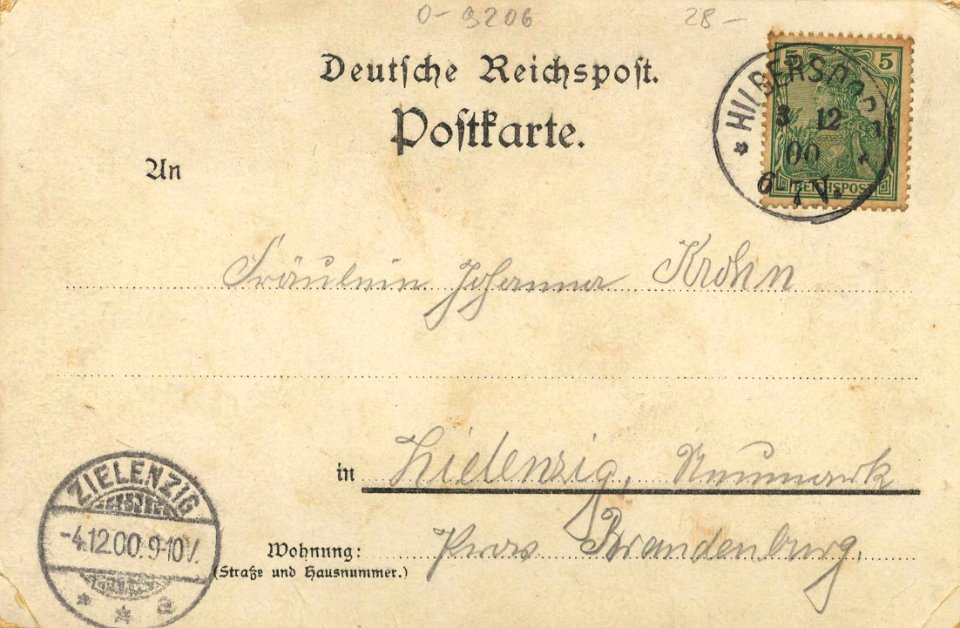 0-9206 28-
Deutsche Reichspost.
Postkarte.
5 5
REICHSPOST
HILBERSDORF
3 12
00
6-7 V.
An
Fräulein Johanna Krohn
in Zielenzig, Neumark
Wohnung: Prov Brandenburg.
(Straße und Hausnummer.)
ZIELENZIG
-4.12.00.9-10V.
a